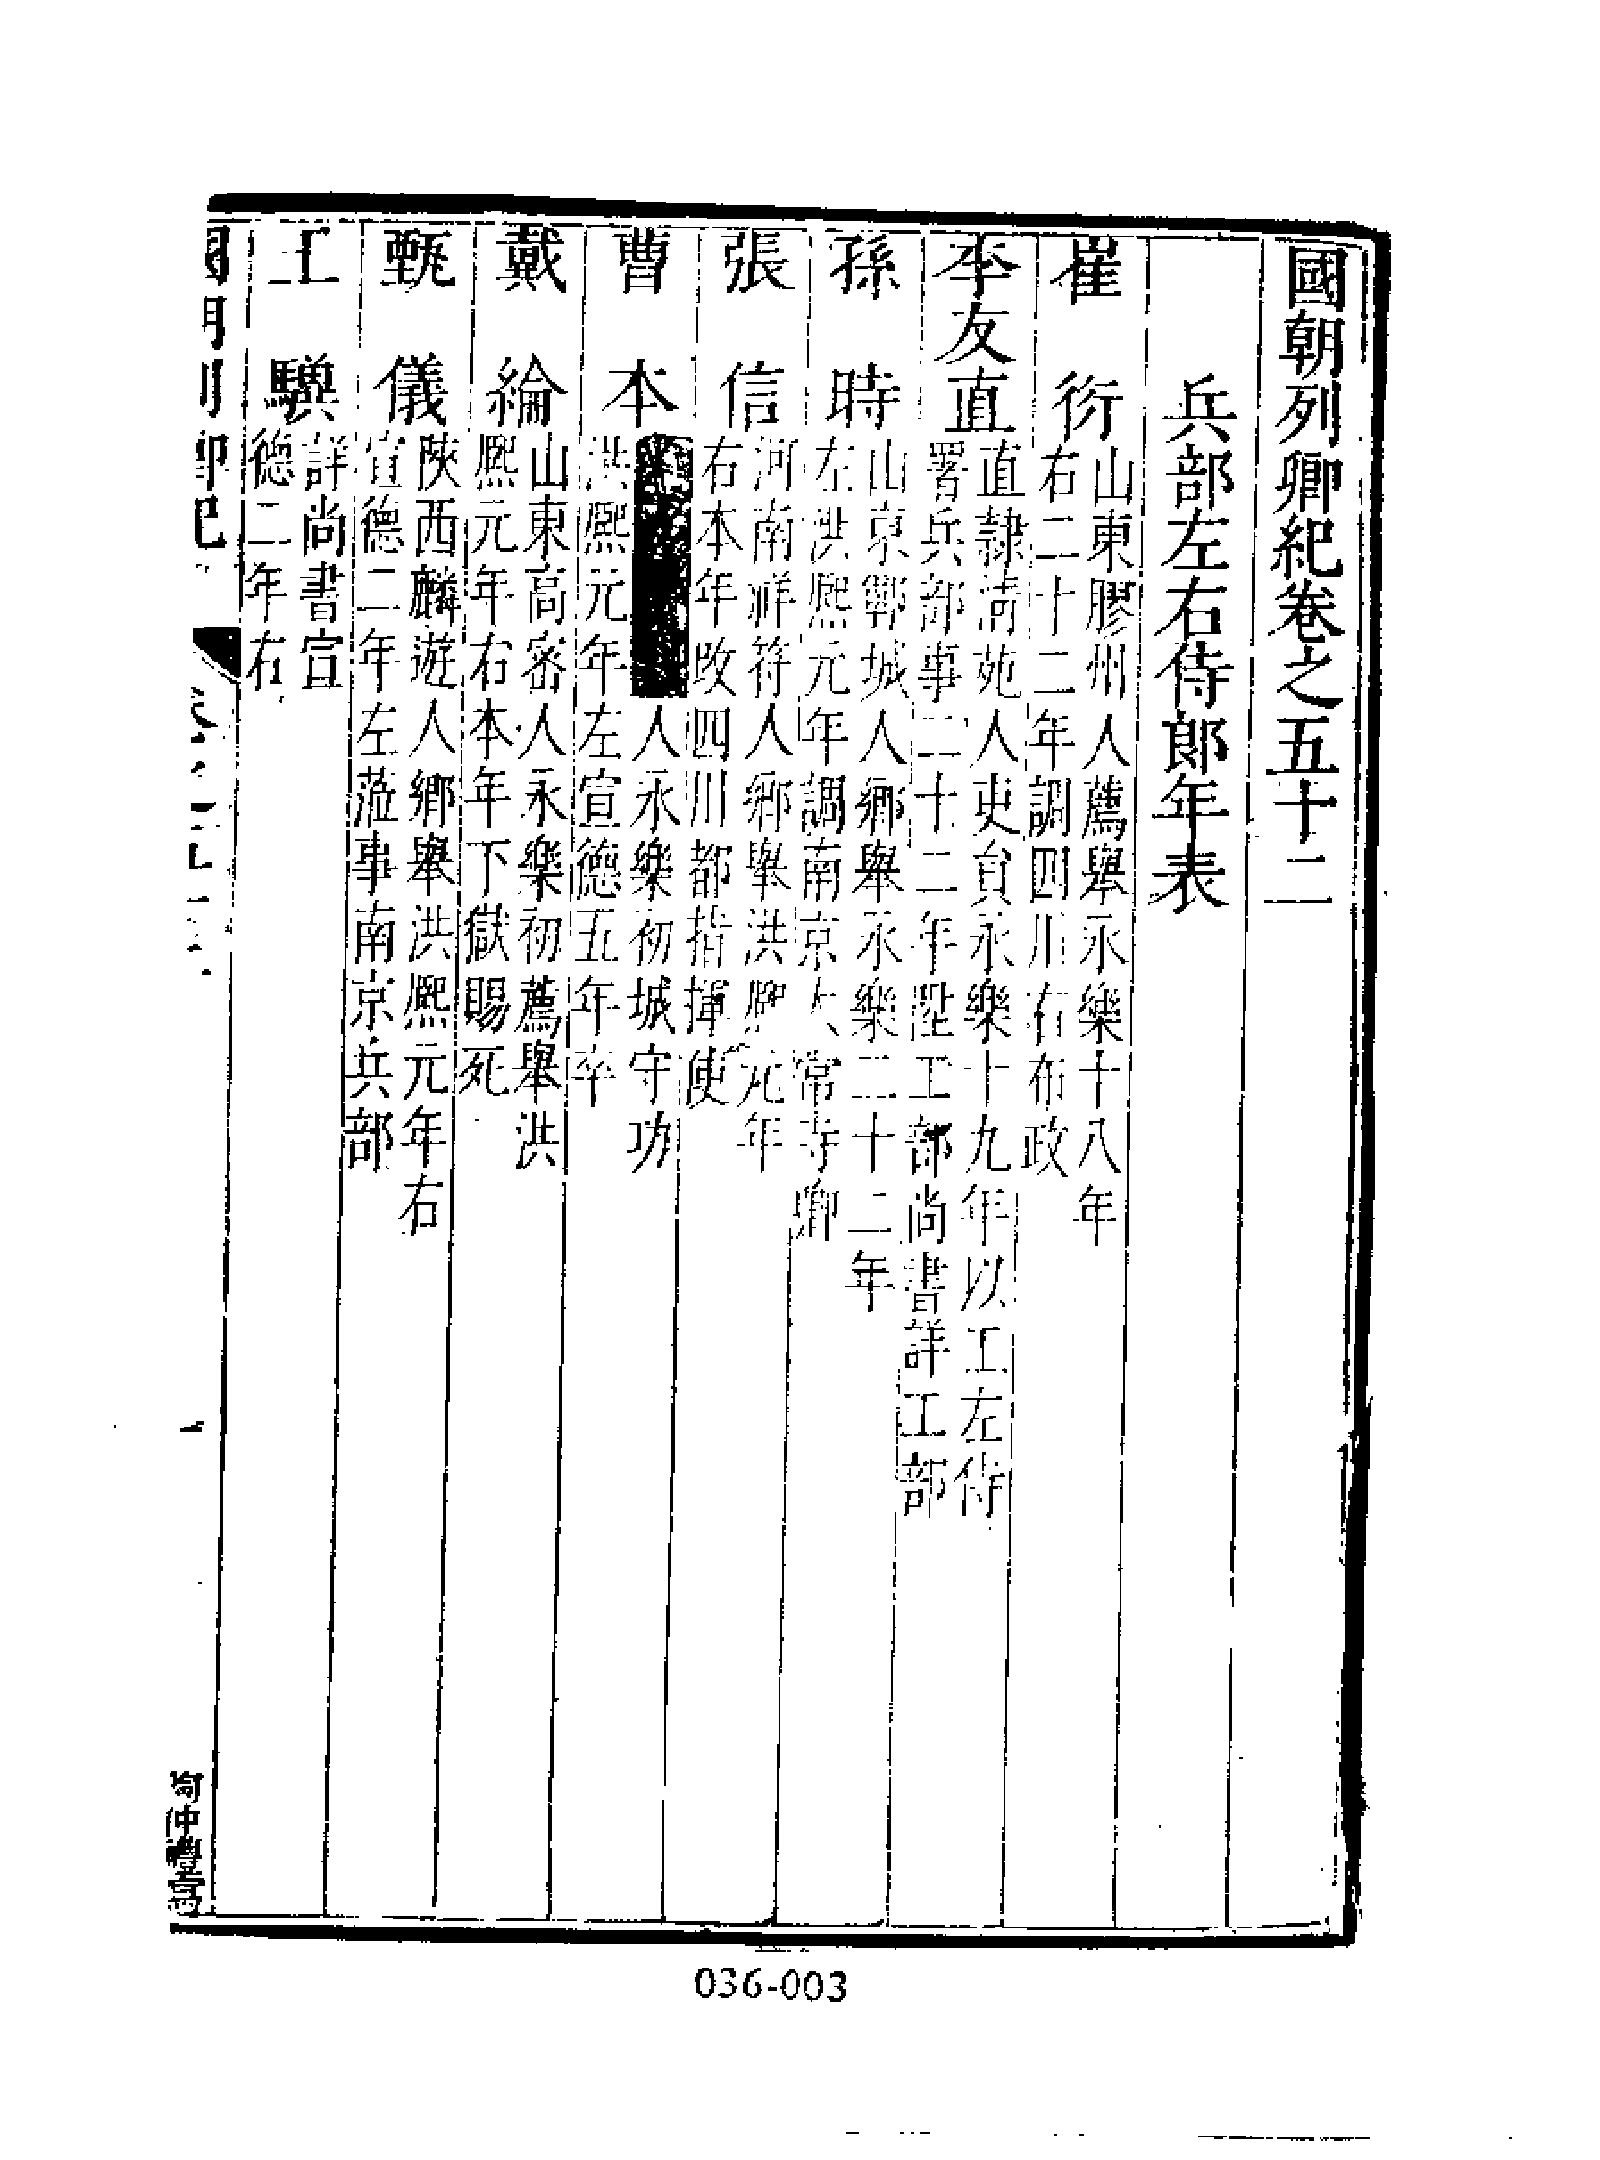 國朝列卿紀卷之五十二
兵部左右侍郎年表
崔衍
山東膠州人薦舉永樂十八年
右二十二年調四川右布政
李友直
直隸清苑人吏員永樂十九年以工左侍
署兵部事二十二年陞工部尚書詳工部
孫時
山京鄆城人鄉舉永樂二十二年
左洪熙元年調南京太常寺卿
張信
河南祥符人鄉舉洪熙元年
右本年改四川都指揮使
曹本
人永樂初城守功
洪熙元年左宣德五年卒
戴綸
山東高密人永樂初薦舉洪
熙元年右本年下獄賜死
甄儀
陝西麟遊人鄉舉洪熙元年右
宣德二年左蒞事南京兵部
王驥
詳尚書宣
德二年右
國朝列卿紀
卷之五十二
一
仲
寫
036-003